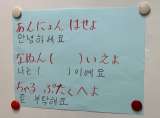 あんにょん はせよ
안녕하세요
なぬん (　　) いえよ
나는 (　　) 이에요
ちゃる ぶたくへよ
잘 부탁해요